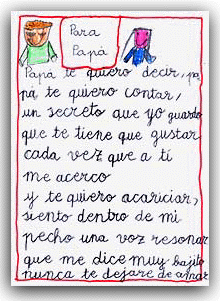 Para
Papá
Papá te quiero decir, pa
pá te quiero contar,
un secreto que yo guardo
que te tiene que gustar
cada vez que a ti
me acerco
y te quiero acariciar,
siento dentro de mi
pecho una voz resonar
que me dice muy bajito
nunca te dejare de amar